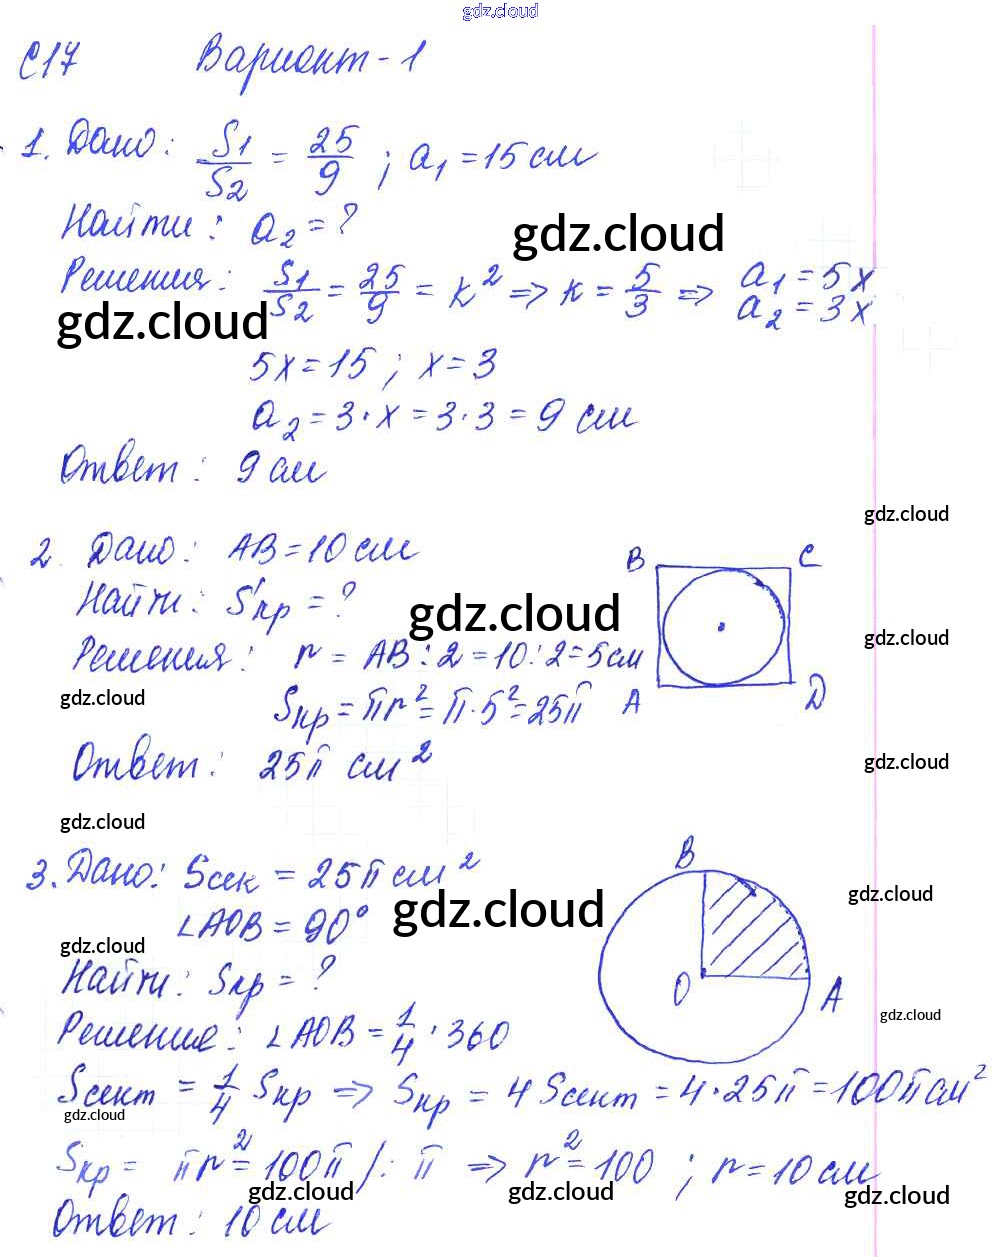 gdz.cloud
С17 Вариант-1
1. Дано: S1/S2 = 25/9 ; a₁ = 15 см
Найти: a₂ = ?
gdz.cloud
Решения: S1/S2 = 25/9 = k² => k = 5/3 => a₁ = 5x
a₂ = 3x
gdz.cloud
5x = 15 ; x = 3
a₂ = 3·x = 3·3 = 9 см
Ответ: 9 см
gdz.cloud
2. Дано: AB = 10 см
B C
Найти: Sкр = ?
gdz.cloud
gdz.cloud
Решения: r = AB : 2 = 10 : 2 = 5 см
gdz.cloud
Sкр = πr² = π·5² = 25π
A D
Ответ: 25π см²
gdz.cloud
gdz.cloud
3. Дано: Sсек = 25π см²
B
gdz.cloud
∠AOB = 90°
gdz.cloud
gdz.cloud
Найти: Sкр = ?
O A
gdz.cloud
Решение: ∠AOB = 1/4 · 360
Sсект = 1/4 Sкр => Sкр = 4 Sсект = 4·25π = 100π см²
gdz.cloud
Sкр = πr² = 100π /: π => r² = 100 ; r = 10 см
gdz.cloud gdz.cloud gdz.cloud
Ответ: 10 см